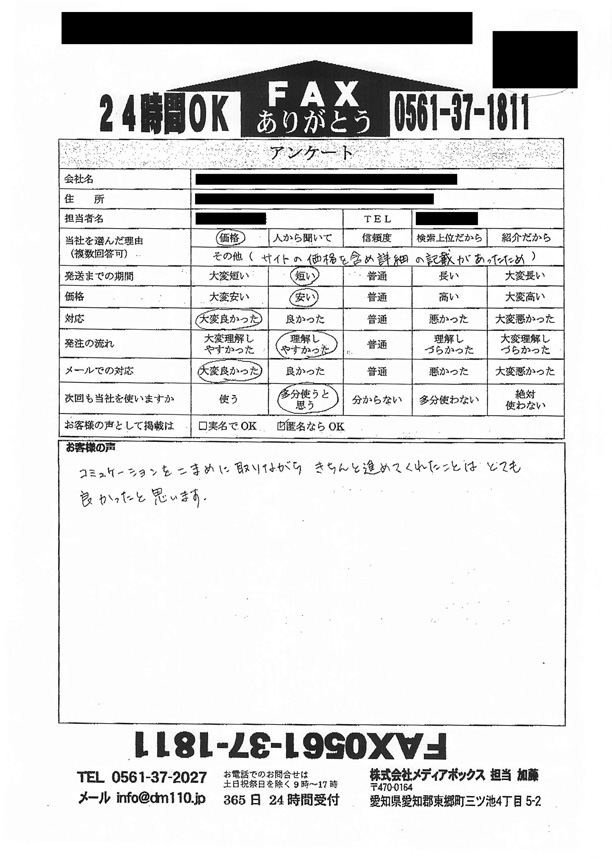 24時間OK
FAX
ありがとう
0561-37-1811
アンケート
会社名
住 所
担当者名 TEL
当社を選んだ理由(複数回答可) 価格 人から聞いて 信頼度 検索上位だから 紹介だから
その他(サイトの価格を含め詳細の記載があったため)
発送までの期間 大変短い 短い 普通 長い 大変長い
価格 大変安い 安い 普通 高い 大変高い
対応 大変良かった 良かった 普通 悪かった 大変悪かった
発注の流れ 大変理解しやすかった 理解しやすかった 普通 理解しづらかった 大変理解しづらかった
メールでの対応 大変良かった 良かった 普通 悪かった 大変悪かった
次回も当社を使いますか 使う 多分使うと思う 分からない 多分使わない 絶対使わない
お客様の声として掲載は □実名でOK ☑匿名ならOK
お客様の声
コミュケーションをこまめに取りながら きちんと進めてくれたことは とても
良かったと思います.
FAX0561-37-1811
TEL 0561-37-2027
メール info@dm110.jp
お電話でのお問合せは
土日祝祭日を除く9時~17時
365日24時間受付
株式会社メディアボックス 担当 加藤
〒470-0164
愛知県愛知郡東郷町三ツ池4丁目5-2